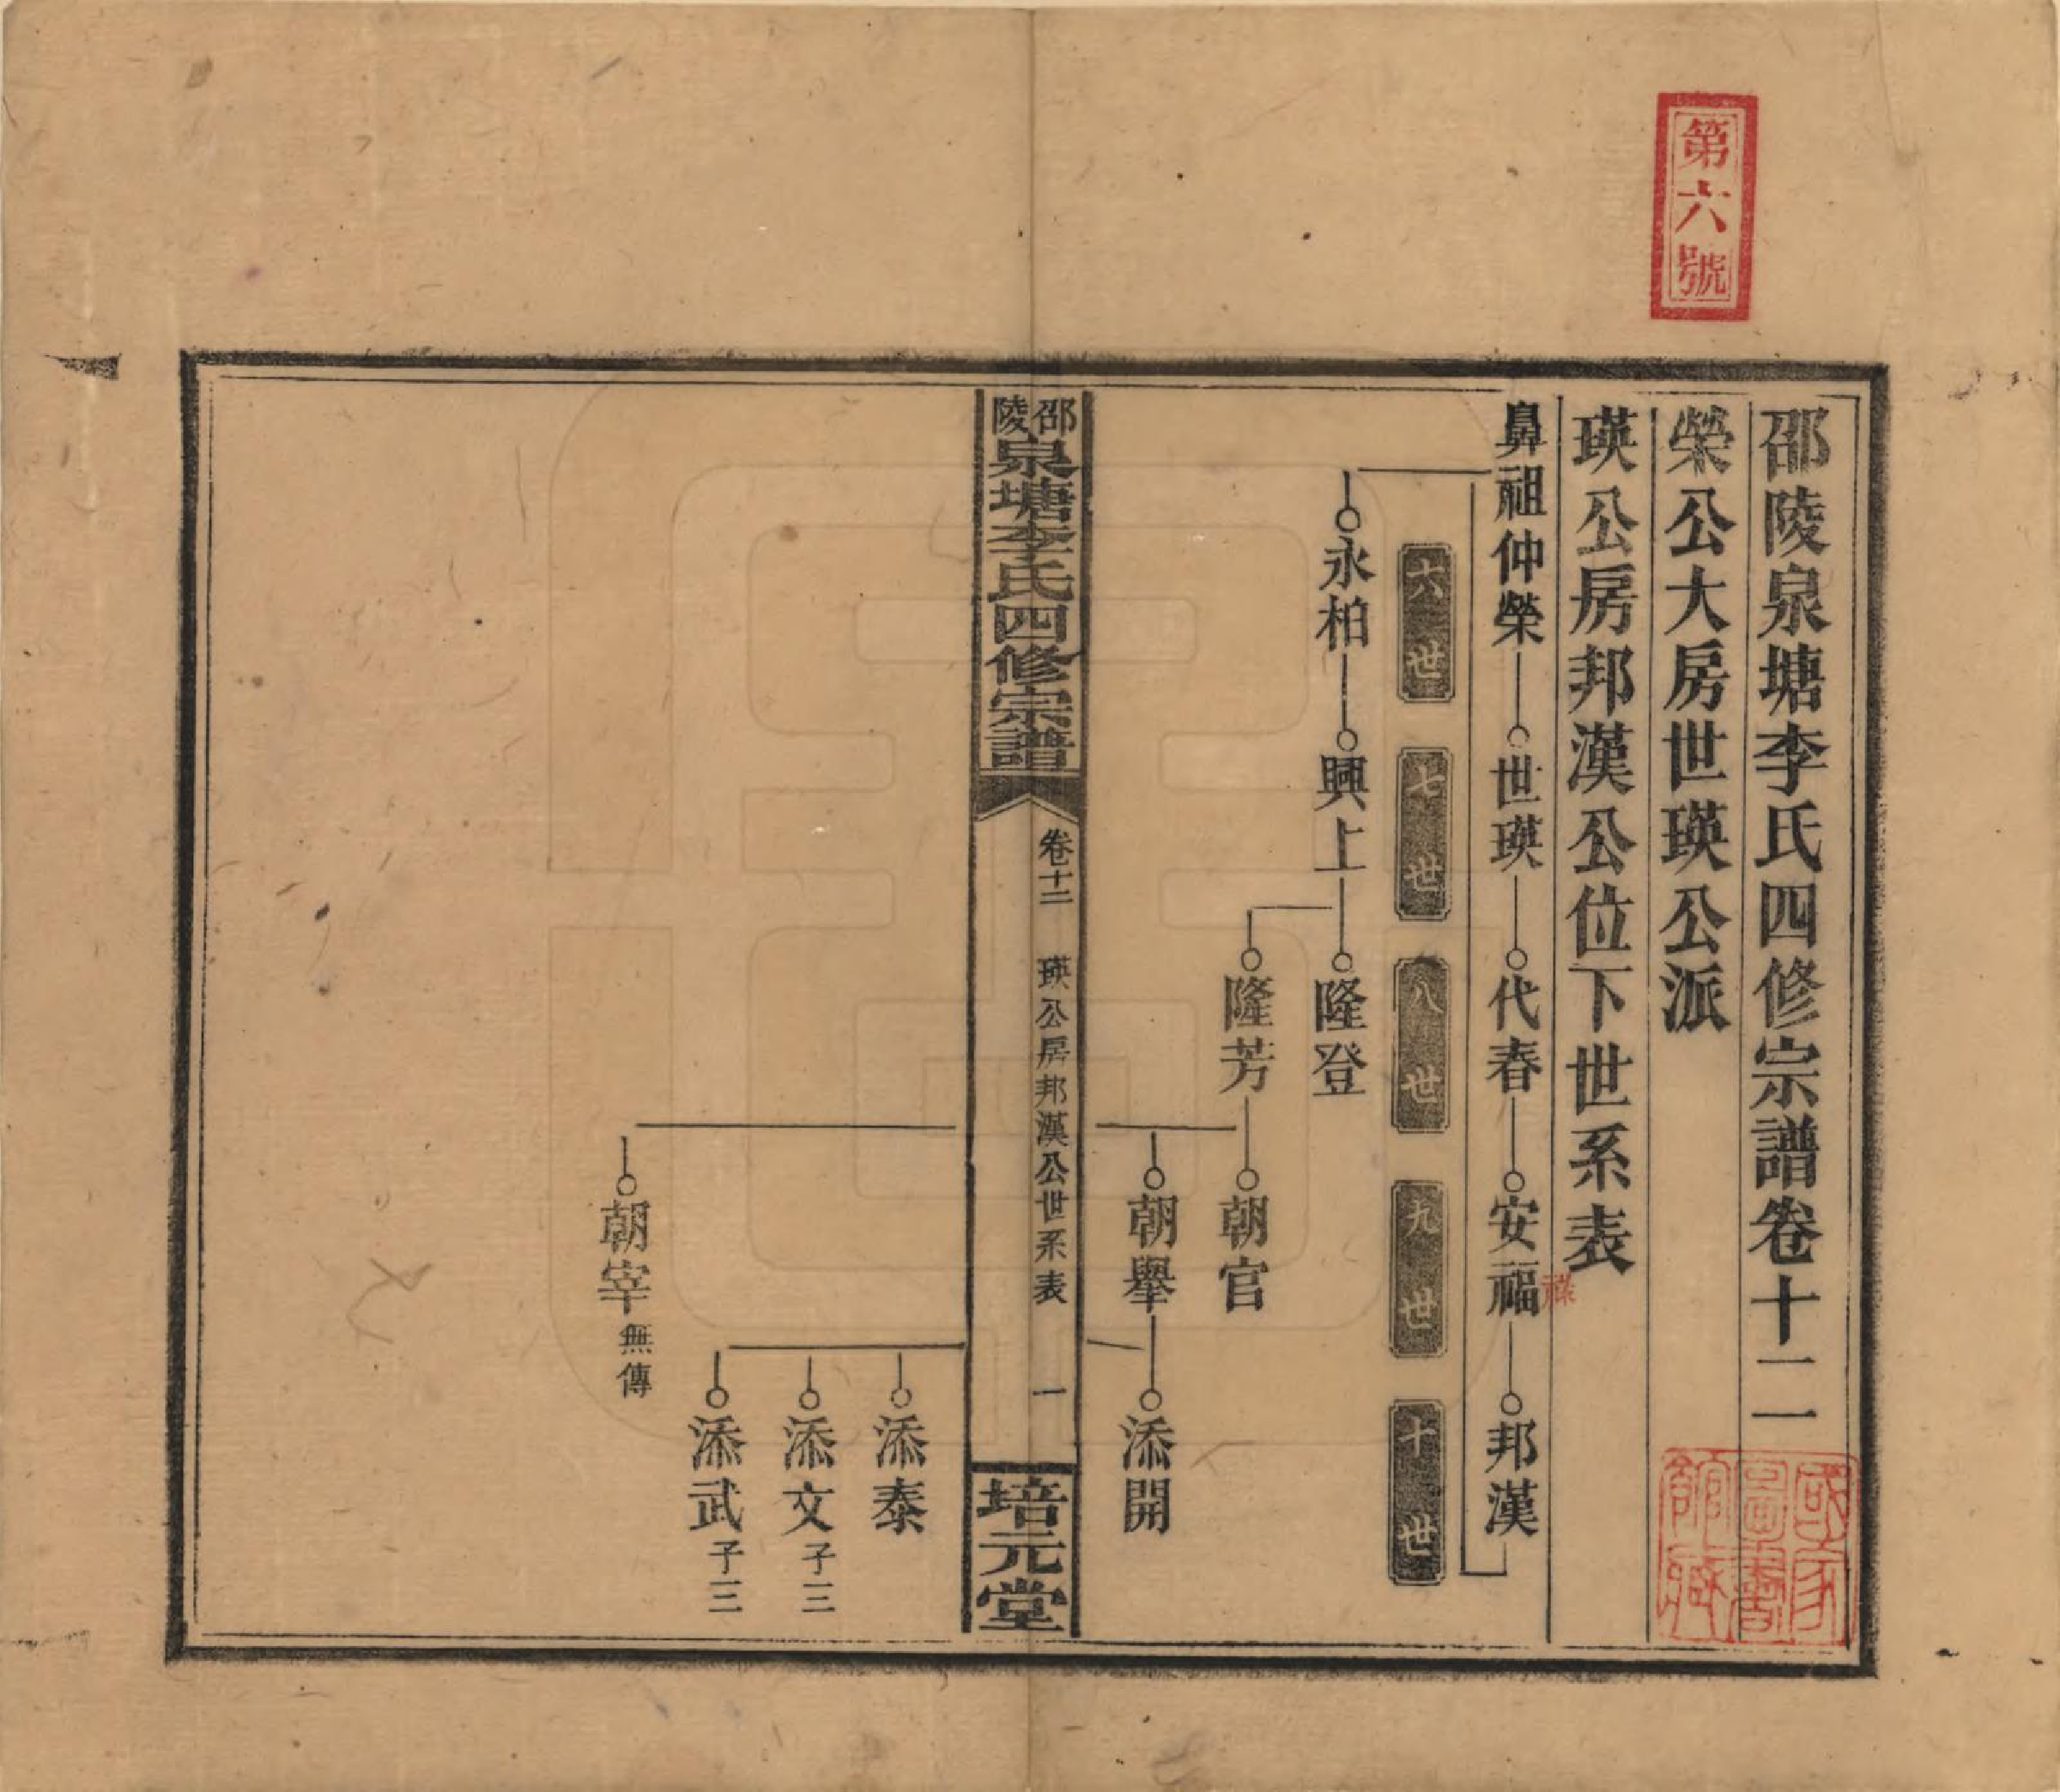 第六號
邵陵泉塘李氏四修宗譜卷十二
榮公大房世瑛公派
瑛公房邦漢公位下世系表
鼻祖仲榮 世瑛 代春 安福 邦漢
祿
六世 七世 八世 九世 十世
永柏 興上 隆登
隆芳 朝官
朝舉 添開
邵陵泉塘李氏四修宗譜
卷十二 瑛公房邦漢公世系表 一
培元堂
添泰
添文 子三
添武 子三
朝宰 無傳
國家圖書館藏